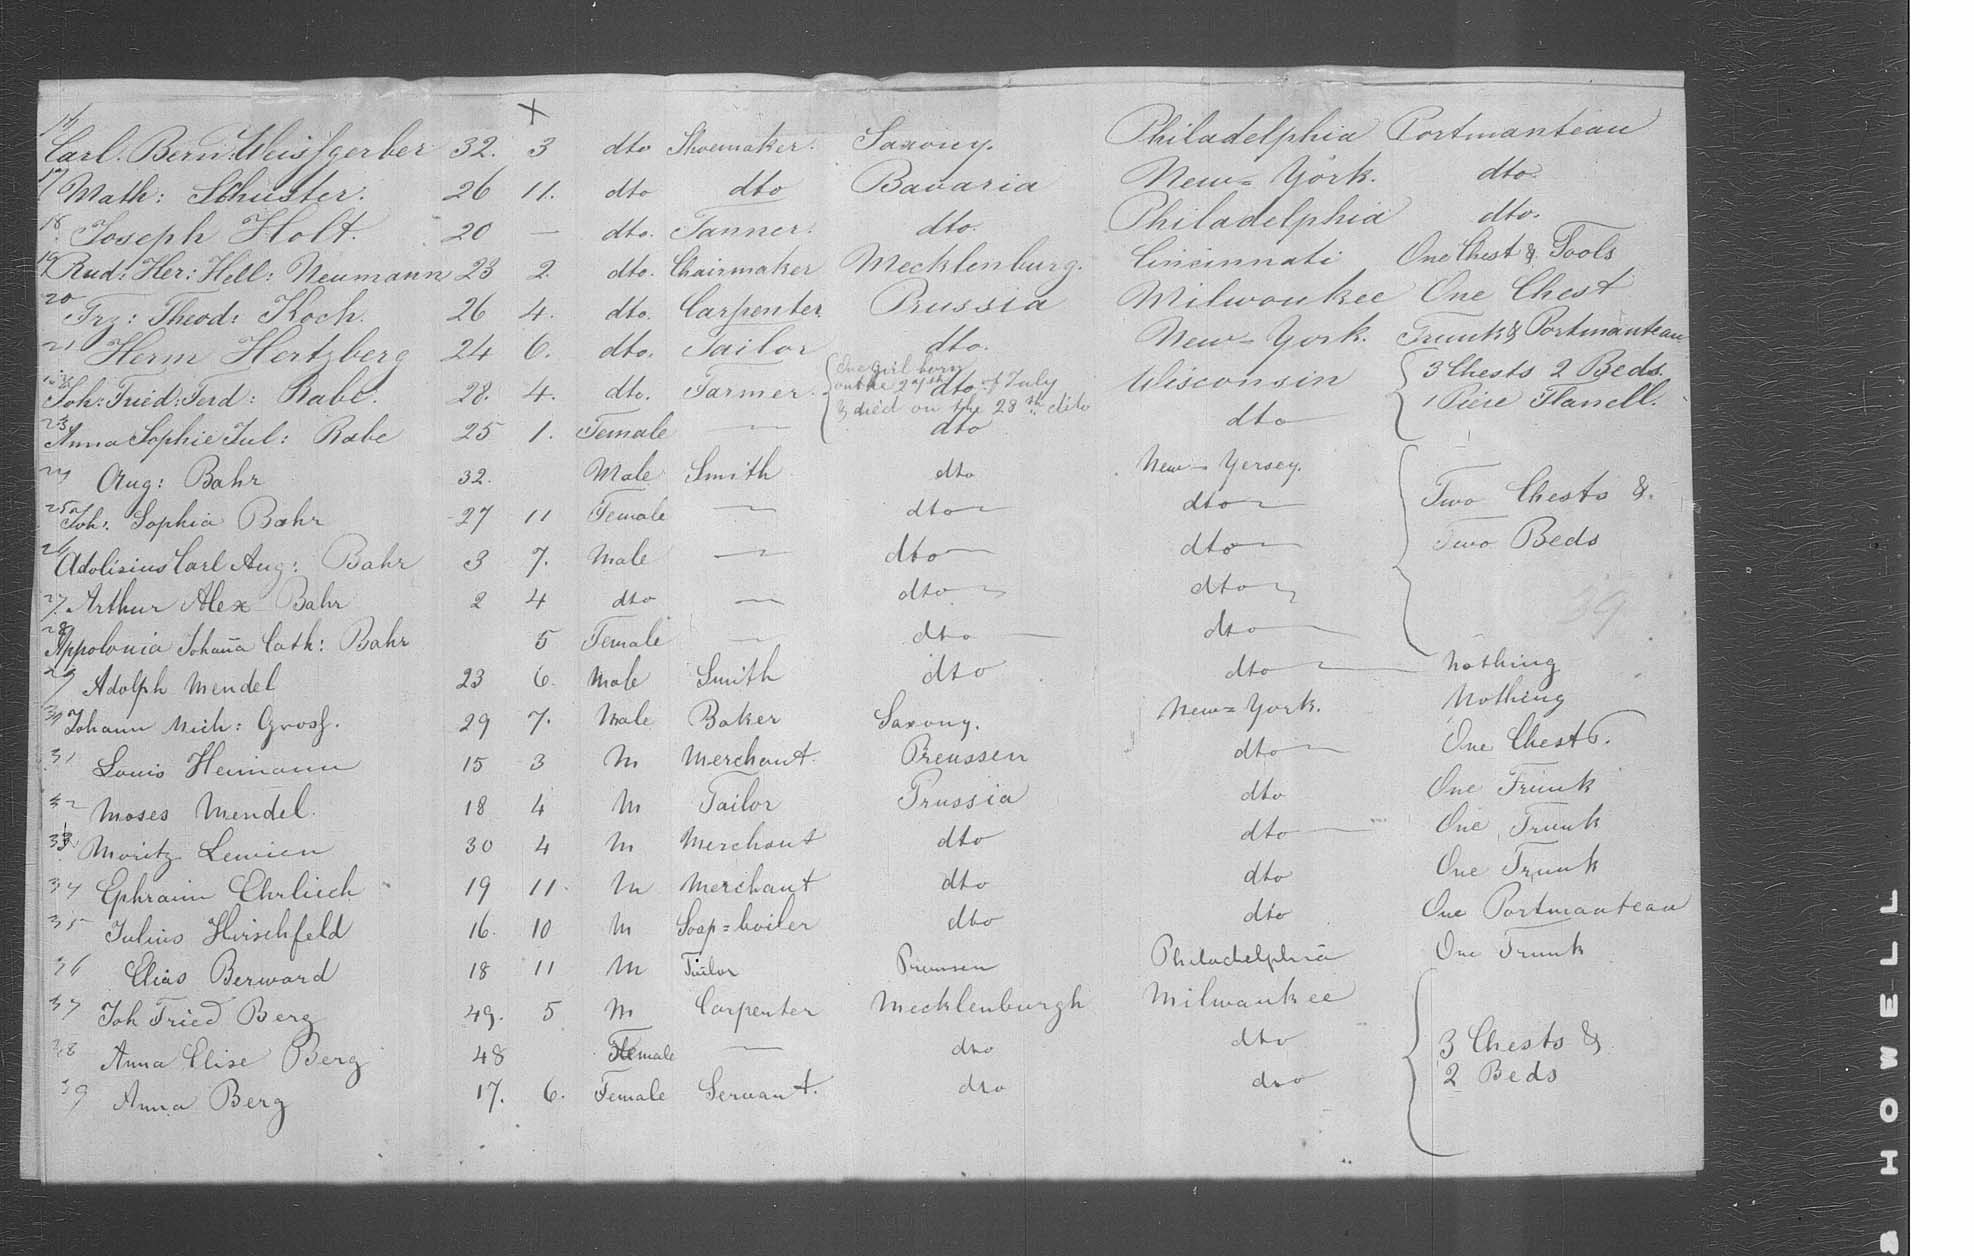 X
16 Carl. Bern. Weissgerber 32. 3 dto Shoemaker. Saxony. Philadelphia Portmanteau
17 Math: Schuster. 26 11. dto dto Bavaria New=York. dto.
18 Joseph Holt. 20 — dto. Tanner. dto. Philadelphia dto.
19 Rud: Her: Hell: Neumann 23 2. dto. Chairmaker Mecklenburg. Cincinnati One Chest & Tools
20 Frz: Theod: Koch. 26 4. dto. Carpenter Prussia Milwoukee One Chest
21 Herm Hertzberg 24 6. dto. Tailor dto. New=York. Trunk & Portmanteau
One Girl born
on the 27th of July
& died on the 28th dito
22 Joh: Fried: Ferd: Rabe. 28. 4. dto. Farmer. dto Wisconsin 3 Chests 2 Beds.
1 Piese Flanell.
23 Anna Sophie Jul: Rabe 25 1. Female — dto dto
24 Aug: Bahr 32. Male Smith dto New-Yersey.
25 Joh: Sophia Bahr 27 11 Female — dto dto Two Chests &
26 Adolisius Carl Aug: Bahr 3 7. Male — dto dto Two Beds
27 Arthur Alex Bahr 2 4 dto — dto dto
39
28 Appolonia Johana Cath: Bahr 5 Female — dto dto
29 Adolph Mendel 23 6. Male Smith dto dto Nothing
30 Johann Mich: Gross. 29 7. Male Baker Saxony. New=York. Nothing
31 Louis Heimann 15 3 M Merchant. Preussen dto One Chest
32 Moses Mendel. 18 4 M Tailor Prussia dto One Trunk
33 Moritz Lewien 30 4 M Merchant dto dto One Trunk
34 Ephraim Ehrlich 19 11. M Merchant dto dto One Trunk
35 Julius Hirschfeld 16. 10 M Soap=boiler dto dto One Portmanteau
36 Elias Berward 18 11 M Tailor Preussen Philadelphia One Trunk
37 Joh Fried Berg 49. 5 M Carpenter Mecklenburgh Milwaukee
38 Anna Elise Berg 48 Female — dto dto 3 Chests &
39 Anna Berg 17. 6. Female Servant. dto dto 2 Beds
HOWELL